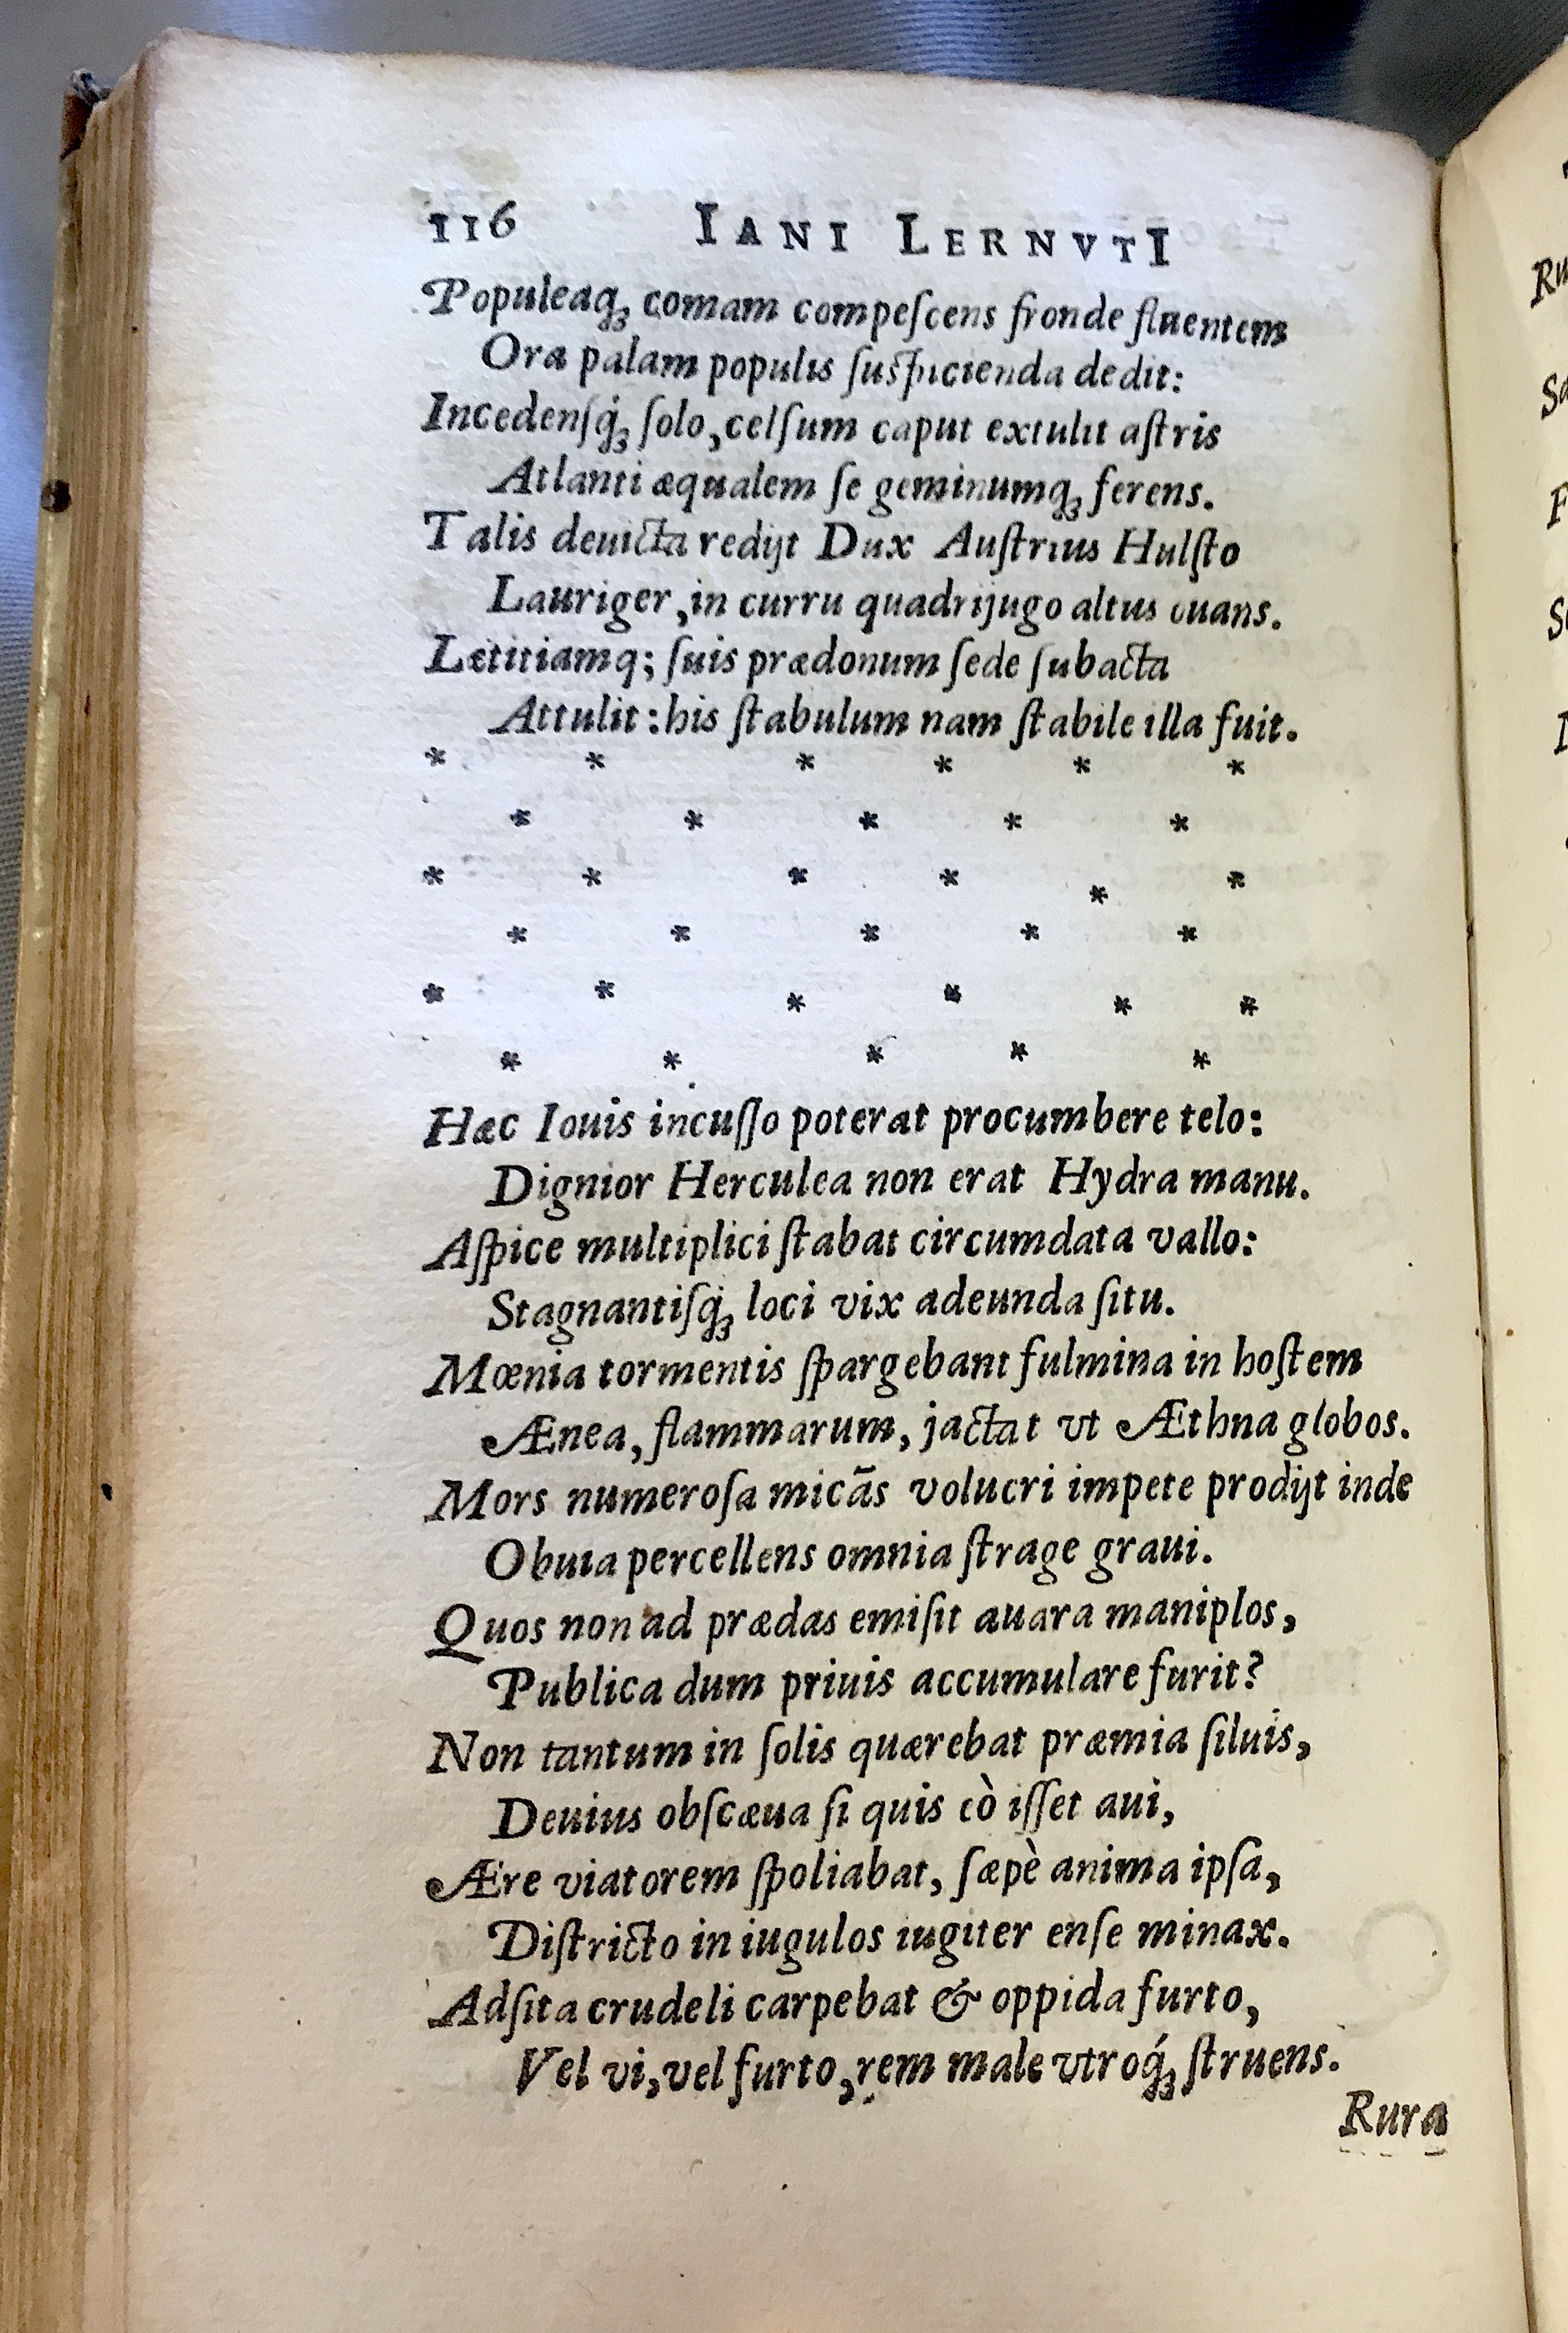 116 IANI LERNVTI
Populeaq́ꝫ comam compeſcens fronde fluentem
Ora palam populis ſuſpicienda dedit:
Incedenſq́ꝫ ſolo, celſum caput extulit aſtris
Atlanti æqualem ſe geminumqꝫ ferens.
Talis deuicta redijt Dux Auſtrius Hulſto
Lauriger, in curru quadrijugo altus ouans.
Lætitiamq; ſuis prædonum ſede ſubacta
Attulit: his ſtabulum nam ſtabile illa fuit.
* * * * * *
* * * * *
* * * * * *
* * * * *
* * * * * *
* * * * *
Hæc Iouis incuſſo poterat procumbere telo:
Dignior Herculea non erat Hydra manu.
Aſpice multiplici ſtabat circumdata vallo:
Stagnantiſq́ꝫ loci vix adeunda ſitu.
Mœnia tormentis ſpargebant fulmina in hoſtem
Ænea, flammarum, jactat vt Æthna globos.
Mors numeroſa micãs volucri impete prodijt inde
Obuia percellens omnia ſtrage graui.
Quos non ad prædas emiſit auara maniplos,
Publica dum priuis accumulare furit?
Non tantum in ſolis quærebat præmia ſiluis,
Deuius obſcæua ſi quis eò iſſet aui,
Ære viatorem ſpoliabat, ſæpè anima ipſa,
Diſtricto in iugulos iugiter enſe minax.
Adſita crudeli carpebat & oppida furto,
Vel vi, vel furto, rem male vtroq́ꝫ ſtruens.
Rura